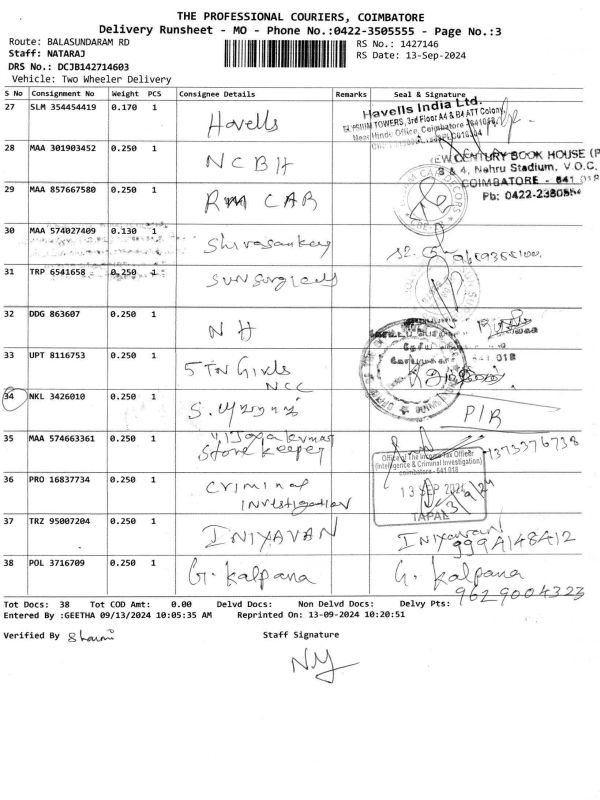 THE PROFESSIONAL COURIERS, COIMBATORE
Delivery Runsheet - MO - Phone No.:0422-3505555 - Page No.:3
Route: BALASUNDARAM RD
RS No.: 1427146
Staff: NATARAJ
RS Date: 13-Sep-2024
DRS No.: DCJB142714603
Vehicle: Two Wheeler Delivery
S No Consignment No Weight PCS Consignee Details Remarks Seal & Signature
27 SLM 354454419 0.170 1 Havells
Havells India Ltd.
TOWERS, 3rd Floor A4 & B4 ATT Colony
Office, Coimbatore
28 MAA 301903452 0.250 1 NCBH
CENTURY BOOK HOUSE (P
& 4, Nehru Stadium, V.O.C.
COIMBATORE - 641 018
Ph: 0422-2380554
29 MAA 857667580 0.250 1 RM CAR
30 MAA 574027409 0.130 1 Shivasankey
31 TRP 6541658 0.250 1 SUN Surgicals
32 DDG 863607 0.250 1 NH
33 UPT 8116753 0.250 1 5 TN Girls
NCC
641 018
34 NKL 3426010 0.250 1 S.
PIR
35 MAA 574663361 0.250 1 Vijayakumar
Store keeper
1373376738
36 PRO 16837734 0.250 1 Criminal
investigation
Office of The Income Tax Officer
(Intelligence & Criminal Investigation)
coimbatore - 641 018
13 SEP 2024
TAPAL
37 TRZ 95007204 0.250 1 INIYAVAN INIYAVAN
9994148412
38 POL 3716709 0.250 1 G. Kalpana G. Kalpana
9629004323
Tot Docs: 38 Tot COD Amt: 0.00 Delvd Docs: Non Delvd Docs: Delvy Pts:
Entered By :GEETHA 09/13/2024 10:05:35 AM Reprinted On: 13-09-2024 10:20:51
Verified By
Staff Signature